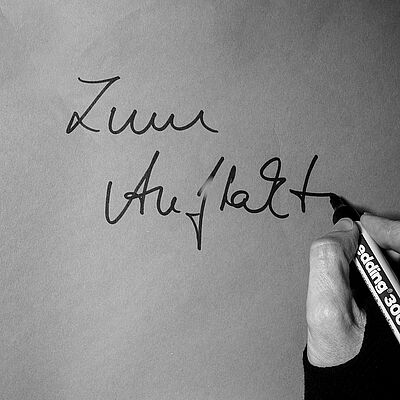 Zum
Auftakt
edding 300